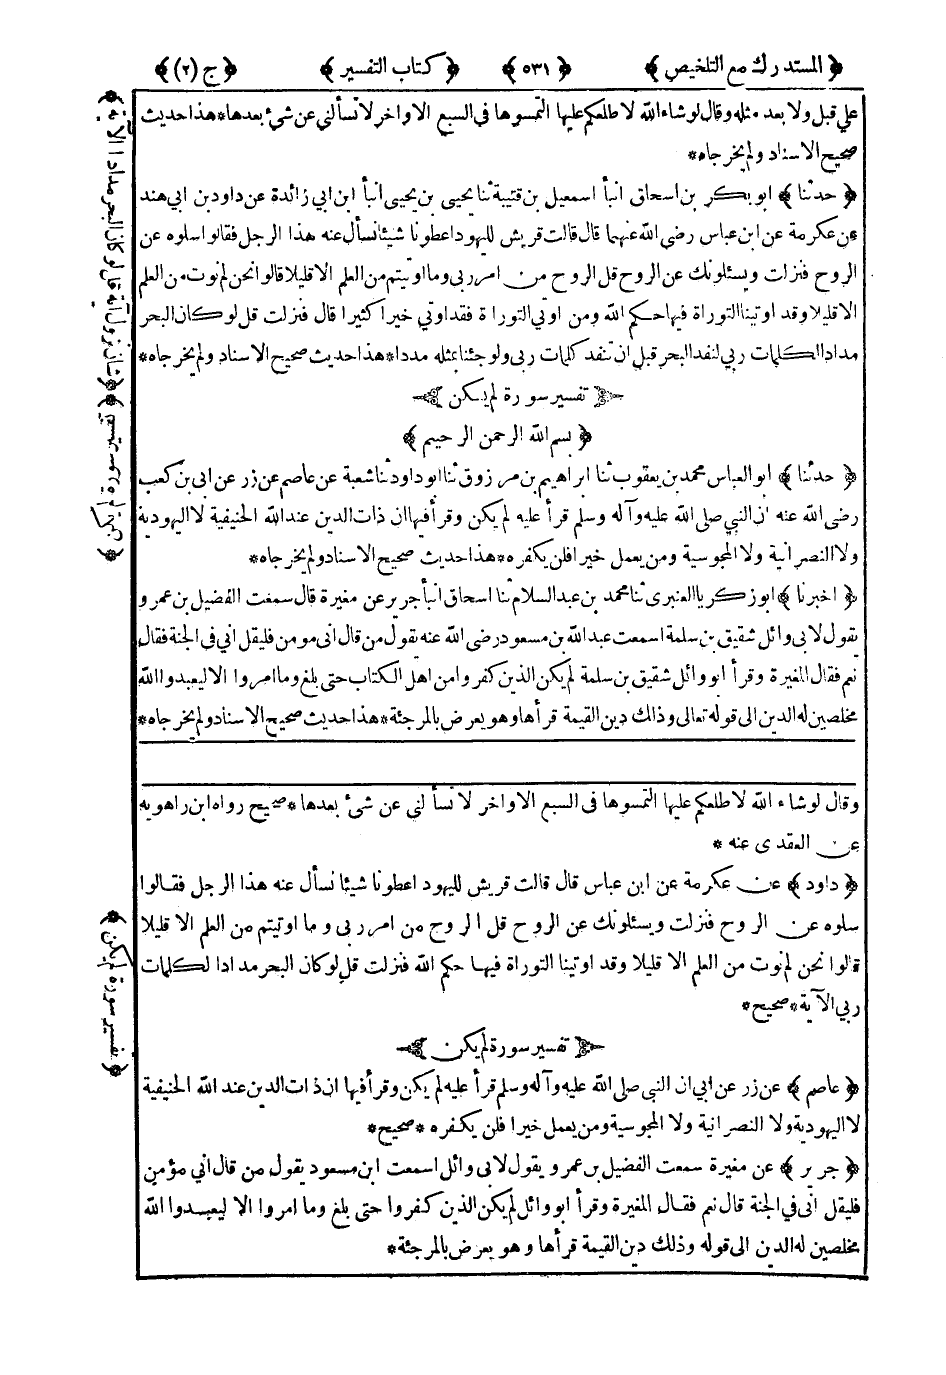 ﴿ المستدرك مع التلخيص ﴾ ﴿ ٥٣١ ﴾ ﴿ كتاب التفسير ﴾ ﴿ ج (٢) ﴾
علي قبل ولا بعد مثله وقال لو شاء الله لا طلعكم عليها التمسوها في السبع الاواخر لا تسألني عن شئ بعدها * هذا حديث
صحيح الاسناد ولم يخرجاه *
﴿ حدثنا ﴾ ابو بكر بن اسحاق انبأ اسمعيل بن قتيبة ثنا يحيى بن يحيى انبأ ابن ابي زائدة عن داود بن ابي هند
عن عكرمة عن ابن عباس رضى الله عنهما قال قالت قريش لليهود اعطونا شيئا نسأل عنه هذا الرجل فقالوا سلوه عن
الروح فنزلت ويسئلونك عن الروح قل الروح من امر ربى وما اوتيتم من العلم الا قليلا قالوا نحن لم نوت من العلم
الا قليلا وقد اوتينا التوراة فيها حكم الله ومن اوتي التوراة فقد اوتي خيرا كثيرا قال فنزلت قل لو كان البحر
مدادا لكلمات ربي لنفد البحر قبل ان تنفد كلمات ربى ولو جئنا بمثله مددا * هذا حديث صحيح الاسناد ولم يخرجاه *
تفسير سورة لم يكن
﴿ بسم الله الرحمن الرحيم ﴾
﴿ حدثنا ﴾ ابو العباس محمد بن يعقوب ثنا ابراهيم بن مرزوق ثنا ابو داود ثنا شعبة عن عاصم عن زر عن ابى بن كعب
رضى الله عنه ان النبي صلى الله عليه وآله وسلم قرأ عليه لم يكن وقرأ فيها ان ذات الدين عند الله الحنيفية لا اليهودية
ولا النصرانية ولا المجوسية ومن يعمل خيرا فلن يكفره * هذا حديث صحيح الاسناد ولم يخرجاه *
﴿ اخبرنا ﴾ ابو زكريا العنبرى ثنا محمد بن عبد السلام ثنا اسحاق انبأ جرير عن مغيرة قال سمعت الفضيل بن عمرو
يقول لابى وائل شقيق بن سلمة اسمعت عبد الله بن مسعود رضى الله عنه يقول من قال انى مومن فليقل اني في الجنة فقال
نعم فقال المغيرة وقرأ ابو وائل شقيق بن سلمة لم يكن الذين كفروا من اهل الكتاب حتى بلغ وما امروا الا ليعبدوا الله
مخلصين له الدين الى قوله تعالى وذلك دين القيمة قرأها وهو يعرض بالمرجئة * هذا حديث صحيح الاسناد ولم يخرجاه *
وقال لو شاء الله لا طلعكم عليها التمسوها فى السبع الاواخر لا تسألني عن شئ بعدها * صحيح رواه ابن راهويه
عن العقدى عنه *
﴿ داود ﴾ عن عكرمة عن ابن عباس قال قالت قريش لليهود اعطونا شيئا نسأل عنه هذا الرجل فقالوا
سلوه عن الروح فنزلت ويسئلونك عن الروح قل الروح من امر ربى وما اوتيتم من العلم الا قليلا
قالوا نحن لم نوت من العلم الا قليلا وقد اوتينا التوراة فيها حكم الله فنزلت قل لو كان البحر مدادا لكلمات
ربي الآية * صحيح *
تفسير سورة لم يكن
﴿ عاصم ﴾ عن زر عن ابي ان النبى صلى الله عليه وآله وسلم قرأ عليه لم يكن وقرأ فيها ان ذات الدين عند الله الحنيفية
لا اليهودية ولا النصرانية ولا المجوسية ومن يعمل خيرا فلن يكفره * صحيح *
﴿ جرير ﴾ عن مغيرة سمعت الفضيل بن عمرو يقول لابى وائل اسمعت ابن مسعود يقول من قال اني مؤمن
فليقل انى في الجنة قال نعم فقال المغيرة وقرأ ابو وائل لم يكن الذين كفروا حتى بلغ وما امروا الا ليعبدوا الله
مخلصين له الدين الى قوله وذلك دين القيمة قرأها وهو يعرض بالمرجئة *
﴿ شان نزول آية قل لو كان البحر مدادا الآية ﴾
﴿ تفسير سورة لم يكن ﴾
﴿ تفسير سورة لم يكن ﴾